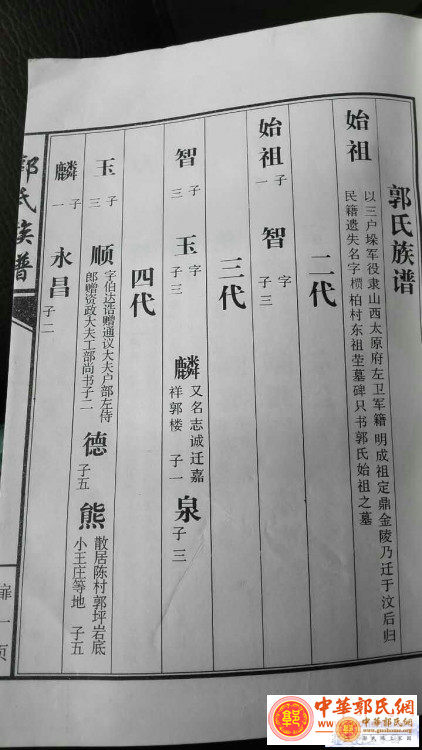 郭氏族谱
始祖 以三户垛军役隶山西太原府左卫军籍 明成祖定鼎金陵乃迁于汶后归
民籍遗失名字槚柏村东祖茔墓碑只书郭氏始祖之墓
二代
始祖 子一 智 字 子三
三代
智 子三 玉 字 子三 麟 又名志诚迁嘉
祥郭楼 子一 泉 子三
四代
玉 子三 顺 字伯达诰赠通议大夫户部左侍
郎赠资政大夫工部尚书子二 德 子五 熊 散居陈村郭坪岩底
小王庄等地 子五
麟 子一 永昌 子二
郭氏族谱
一页
中華郭氏網
www.guohome.org